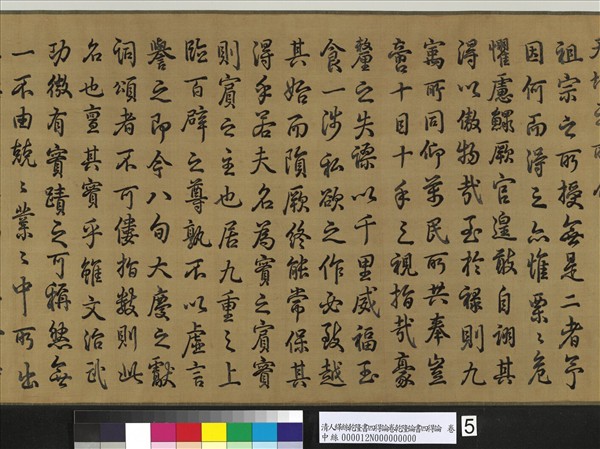 祖宗之所授無是二者予
因何而得之亦惟栗〻危
懼慮鰥厥官遑敢自詡其
得以傲物哉至於祿則九
寓所同仰萬民所共奉豈
啻十目十手之視指哉豪
釐之失謬以千里威福玉
食一涉私欲之作必致越
其始而隕厥終能常保其
得乎若夫名為實之賓實
則賓之主也居九重之上
臨百辟之尊孰不以虛言
譽之即今八旬大慶之獻
詞頌者不可僂指數則此
名也亶其實乎雖文治武
功微有實蹟之可稱然無
一不由兢〻業〻中所出
中絲 000012N000000000
5